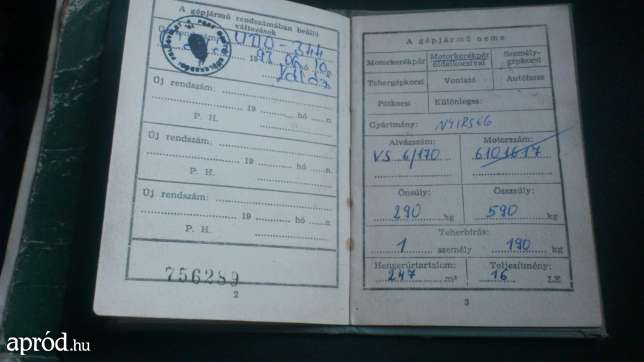 A gépjármű rendszámában beálló
változások
UDO-344
Új rendszám:
19 hó n.
P. H.
Új rendszám:
19 hó n.
P. H.
Új rendszám:
19 hó n.
P. H.
756289
2
A gépjármű neme
Motorkerékpár Motorkerékpár oldalkocsival Személygépkocsi
Tehergépkocsi Vontató Autóbusz
Pótkocsi Különleges:
Gyártmány: NYIRSÉG
Alvázszám: Motorszám:
VS 6/170 6101617
Önsúly: Összsúly:
290 kg 590 kg
Teherbírás:
1 személy 190 kg
Hengerűrtartalom: Teljesítmény:
247 m³ 16 LE
3
apród.hu